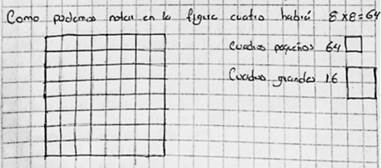 Como podemos notar en la figura cuatro habrá 8x8=64
Cuadros pequeños 64
Cuadros grandes 16